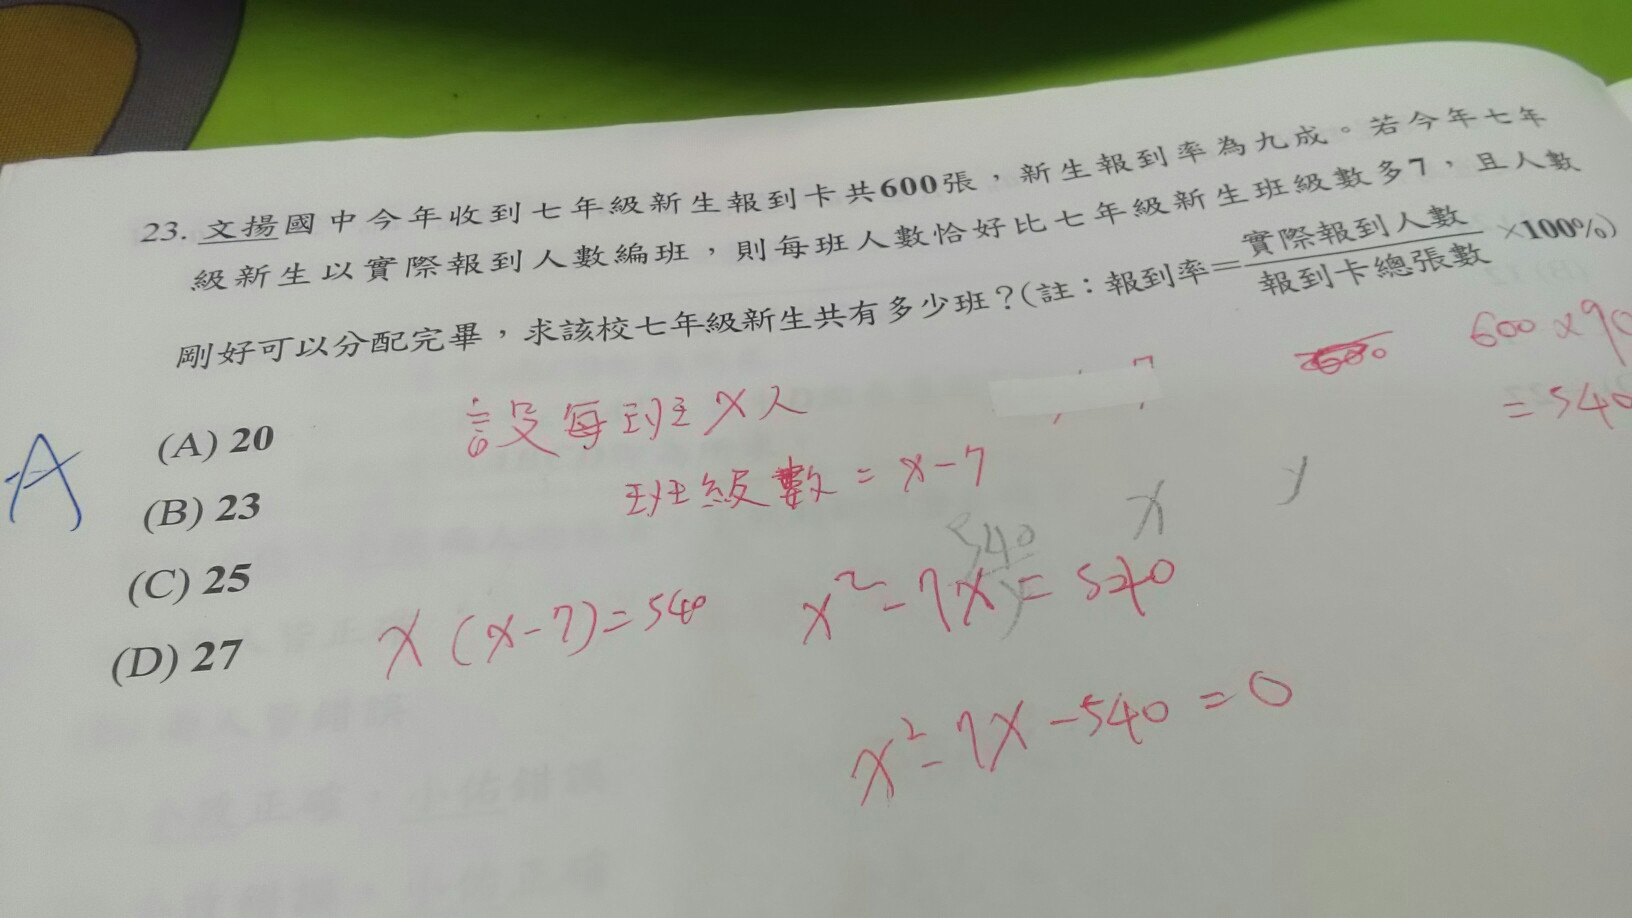 23. 文揚國中今年收到七年級新生報到卡共600張，新生報到率為九成。若今年七年
級新生以實際報到人數編班，則每班人數恰好比七年級新生班級數多7，且人數
剛好可以分配完畢，求該校七年級新生共有多少班？(註：報到率＝實際報到人數/報到卡總張數×100%)
600×90
=540
設每班X人
7
(A) 20
A
班級數=x-7
(B) 23
x y
540
y
(C) 25
x(x-7)=540
x²-7x=540
(D) 27
x²-7x-540=0